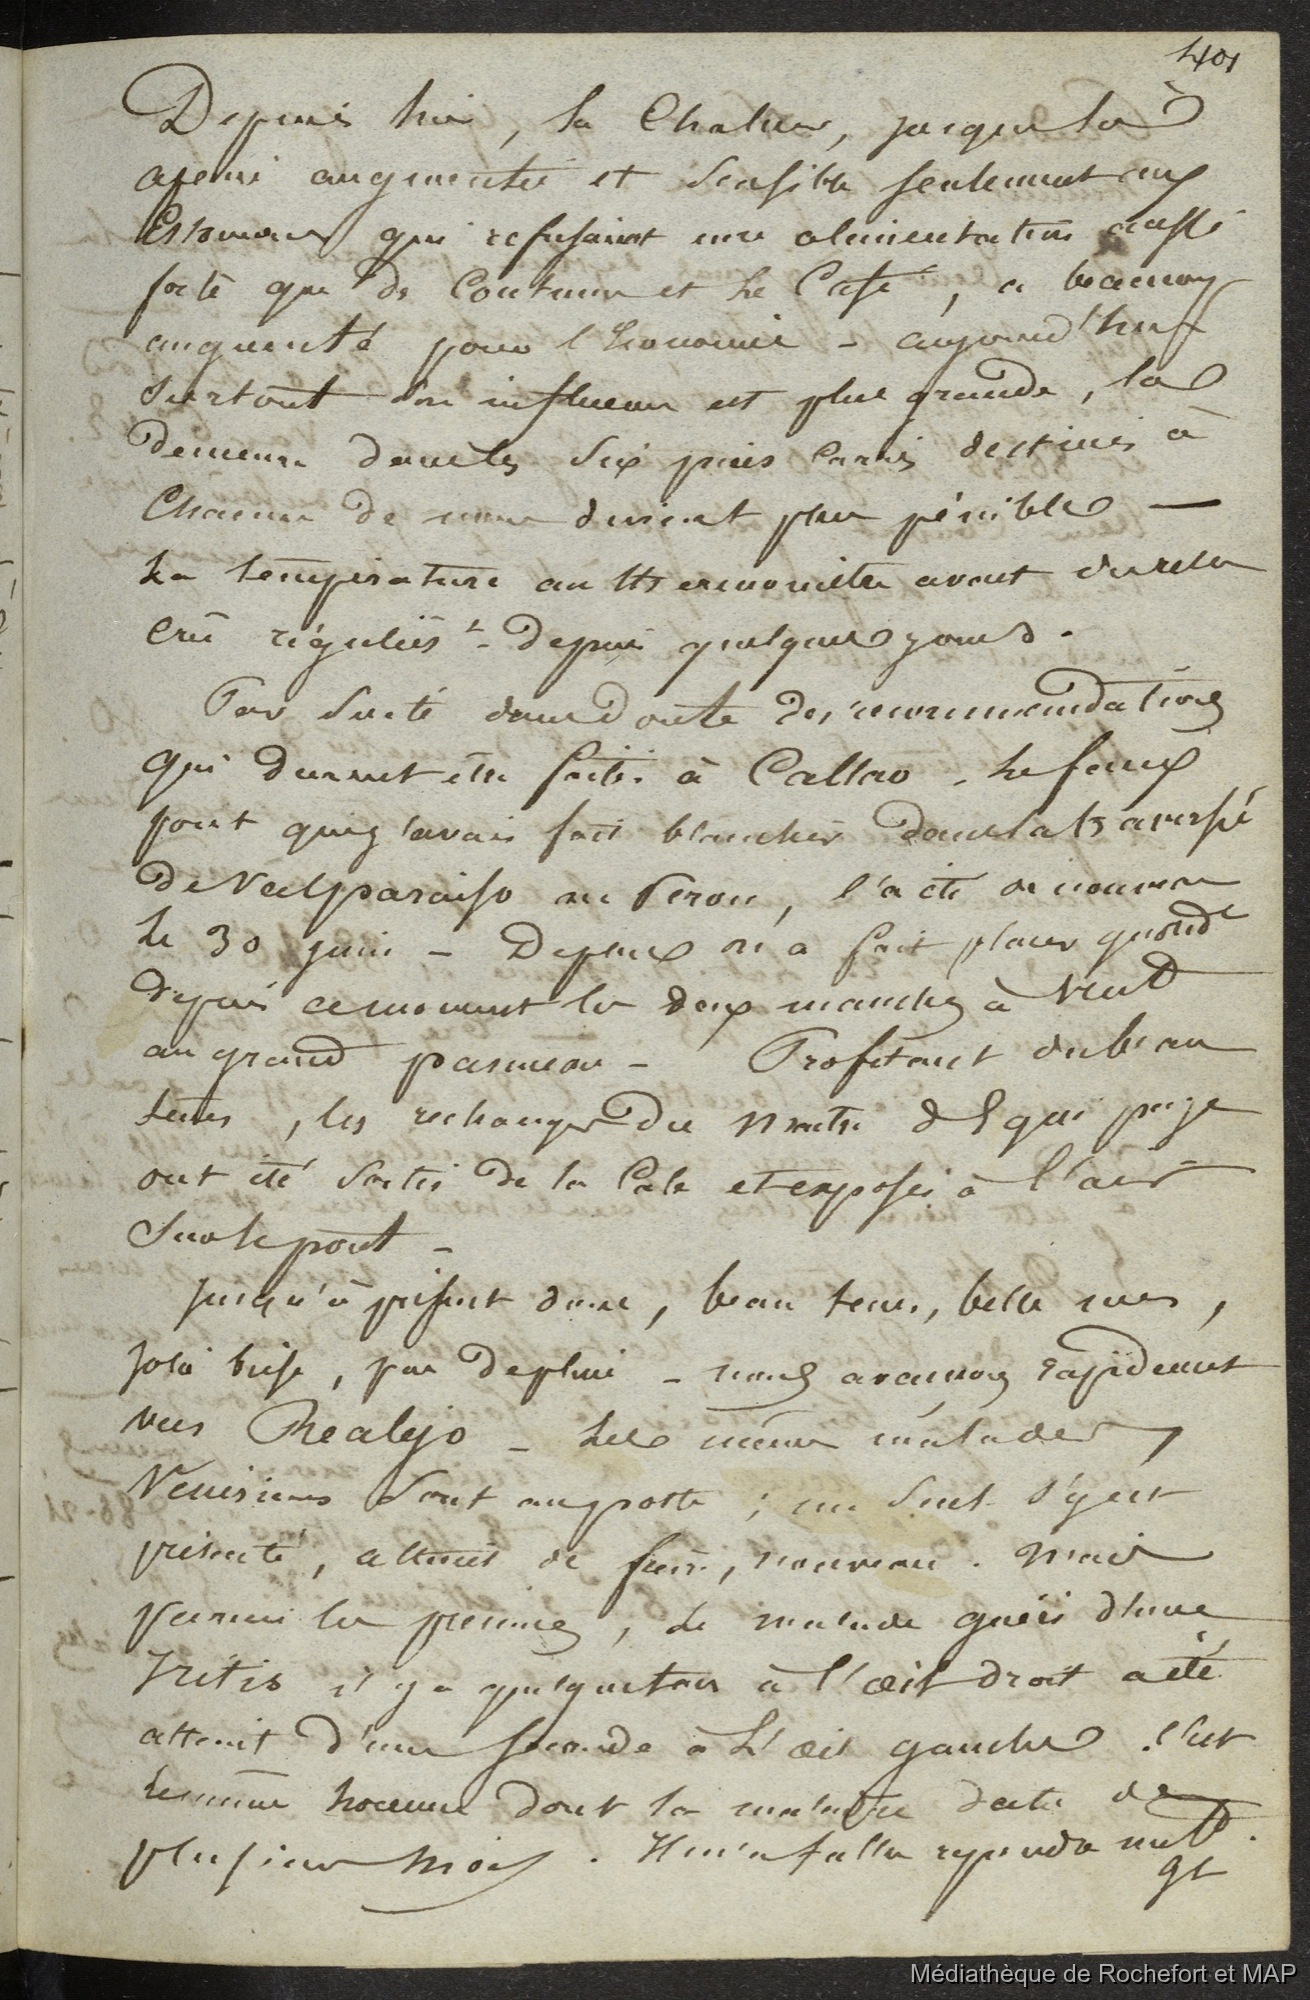 401
Depuis hier, la Chaleur, jusque là
à peine augmentée et sensible seulement aux
Estomacs qui refusaient une alimentation aussi
forte que de Coutume et le Café, a beaucoup
augmenté pour l'Économie - aujourd'hui
surtout son influence est plus grande, la
demeure dans les six pieds carrés destinés à
Chacun de nous devient plus pénible —
La température au thermomètre avait du reste
crû régulièrt - depuis quelques jours.
Par suite sans doute des recommendations
qui durent être faites à Callao, le faux
pont qui n'avait fait blanchir dans la traversée
de Valparaiso au Pérou, l'a été de nouveau
le 30 juin - Depuis on a fait placer
depuis ce moment les deux manches à vent
au grand panneau - Profitant du beau
tems, les rechanges du maitre d'Equipage
ont été sortis de la Cale et exposés à l'air
sur le pont -
Jusqu'à présent donc, beau tems, belle mer,
jolie brise, peu de pluie - nous avançons rapidement
vers Realejo - Les mêmes malades
Vénériens sont au poste ; un seul s'y est
présenté, atteint de, nouveau. Mais
parmi les premiers, le malade guéri d'une
Iritis il y a quelque tems à l'œil droit a été
atteint d'une seconde à l'œil gauche. C'est
le même homme dont la maladie date de
plusieurs mois. Il m'a fallu reprendre